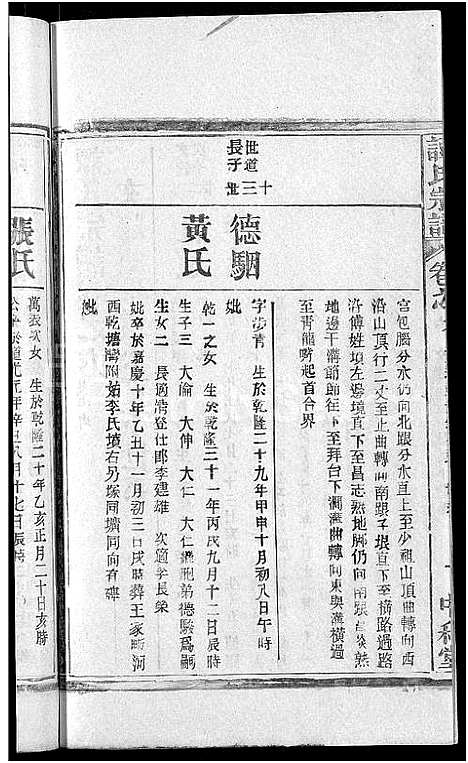 宮包腦分水仍向北跟分水直上至少祖山頂曲轉向西
沿山頂行二丈至止曲轉向南跟子垠直下至橫路過路
沿傅姓項左邊墳直下至昌志熟地脚仍向南
地邊干溝節節往下至拜台下澗溝曲轉向東與溝橫過
至青龍嘴起首合界
世道長子
十三世
德駰
黃氏
字莎青 生於乾隆二十九年甲申十月初八日午時
妣
乾一之女 生於乾隆三十一年丙戌九月十二日辰時
生子三 大倫 大伸 大仁 大仁繼胞弟德駿爲嗣
生女二 長適清登仕郎李建雄 次適李長榮
妣卒於嘉慶十年乙丑十一月初三日戌時葬王家畈河
西乾塘灣附始李氏墳右另塚同壙同向有碑
妣
張氏
萬表次女 生於乾隆二十年乙亥正月二十日亥時
公卒於道光元年辛丑八月十七日辰時
氏宗譜
卷
中和堂